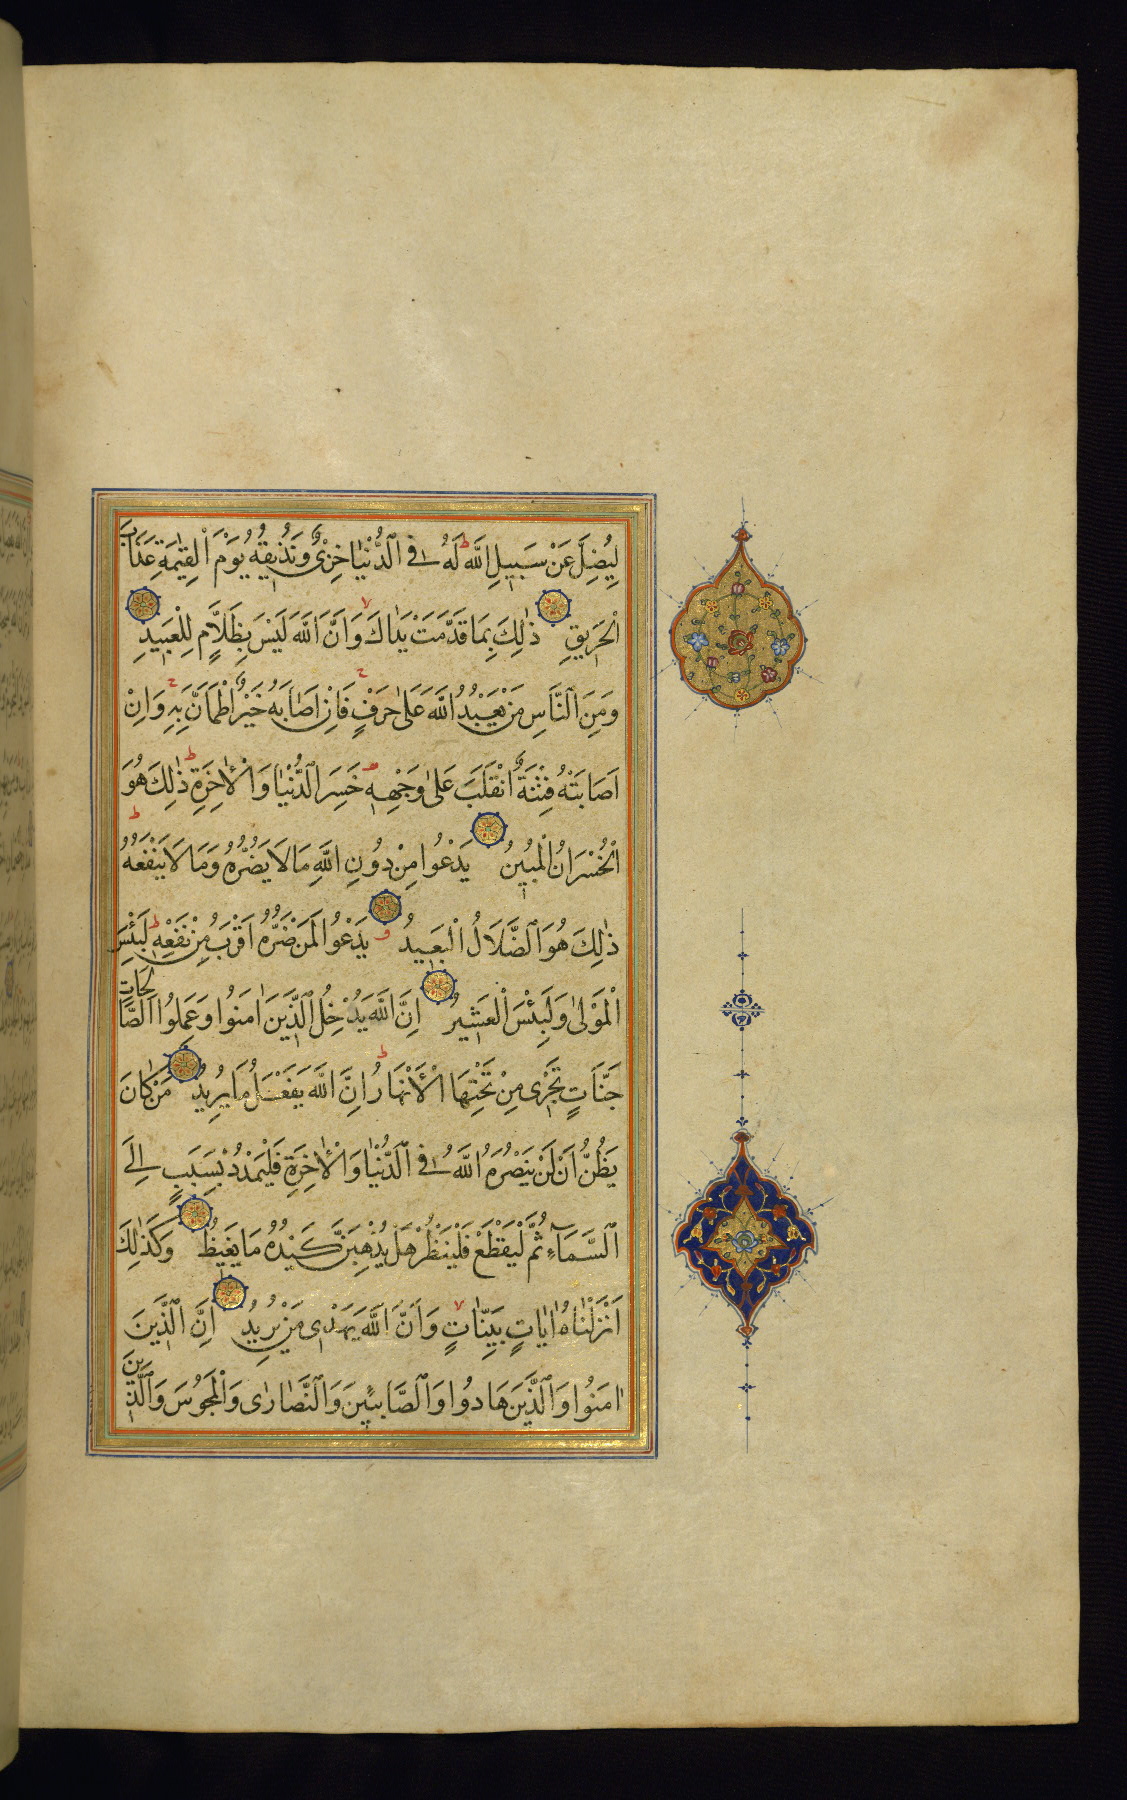 لِيُضِلَّ عَنْ سَبِيلِ اللَّهِ ط لَهُ فِي الدُّنْيَا خِزْيٌ وَنُذِيقُهُ يَوْمَ الْقِيٰمَةِ عَذَابَ
الْحَرِيقِ ذٰلِكَ بِمَا قَدَّمَتْ يَدَاكَ وَاَنَّ اللَّهَ لَيْسَ بِظَلَّامٍ لِلْعَبِيدِ
وَمِنَ النَّاسِ مَنْ يَعْبُدُ اللَّهَ عَلٰى حَرْفٍ ج فَاِنْ اَصَابَهُ خَيْرٌ اطْمَاَنَّ بِهِ ج وَاِنْ
اَصَابَتْهُ فِتْنَةٌ انْقَلَبَ عَلٰى وَجْهِهِ خَسِرَ الدُّنْيَا وَالْاٰخِرَةَ ط ذٰلِكَ هُوَ
الْخُسْرَانُ الْمُبِينُ يَدْعُوا مِنْ دُونِ اللَّهِ مَا لَا يَضُرُّهُ وَمَا لَا يَنْفَعُهُ ط
ذٰلِكَ هُوَ الضَّلَالُ الْبَعِيدُ يَدْعُوا لَمَنْ ضَرُّهُ اَقْرَبُ مِنْ نَفْعِهِ ط لَبِئْسَ
الْمَوْلٰى وَلَبِئْسَ الْعَشِيرُ اِنَّ اللَّهَ يُدْخِلُ الَّذِينَ اٰمَنُوا وَعَمِلُوا الصَّالِحَاتِ
جَنَّاتٍ تَجْرِى مِنْ تَحْتِهَا الْاَنْهَارُ ط اِنَّ اللَّهَ يَفْعَلُ مَا يُرِيدُ مَنْ كَانَ
يَظُنُّ اَنْ لَنْ يَنْصُرَهُ اللَّهُ فِي الدُّنْيَا وَالْاٰخِرَةِ فَلْيَمْدُدْ بِسَبَبٍ اِلَى
السَّمَآءِ ثُمَّ لْيَقْطَعْ فَلْيَنْظُرْ هَلْ يُذْهِبَنَّ كَيْدُهُ مَا يَغِيظُ وَكَذٰلِكَ
اَنْزَلْنَاهُ اٰيَاتٍ بَيِّنَاتٍ وَاَنَّ اللَّهَ يَهْدِى مَنْ يُرِيدُ اِنَّ الَّذِينَ
اٰمَنُوا وَالَّذِينَ هَادُوا وَالصَّابِئِينَ وَالنَّصَارٰى وَالْمَجُوسَ وَالَّذِينَ